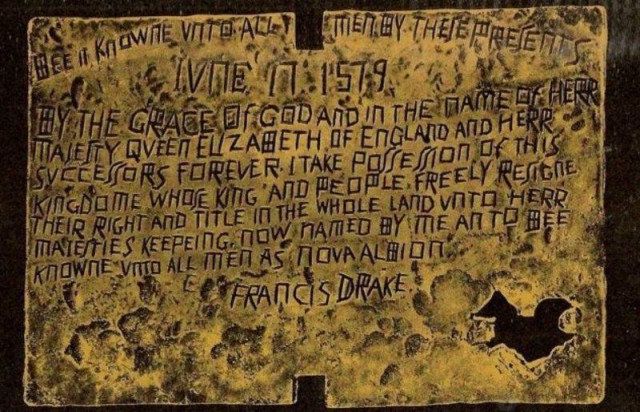 BEE IT KNOWNE VNTO ALL MEN BY THESE PRESENTS
IVNE 17 1579
BY THE GRACE OF GOD AND IN THE NAME OF HERR
MAIESTY QVEEN ELIZABETH OF ENGLAND AND HERR
SVCCESSORS FOREVER. I TAKE POSSESSION OF THIS
KINGDOME WHOSE KING AND PEOPLE FREELY RESIGNE
THEIR RIGHT AND TITLE IN THE WHOLE LAND VNTO HERR
MAIESTIES KEEPEING. NOW NAMED BY ME AN TO BEE
KNOWNE VNTO ALL MEN AS NOVA ALBION.
G FRANCIS DRAKE.